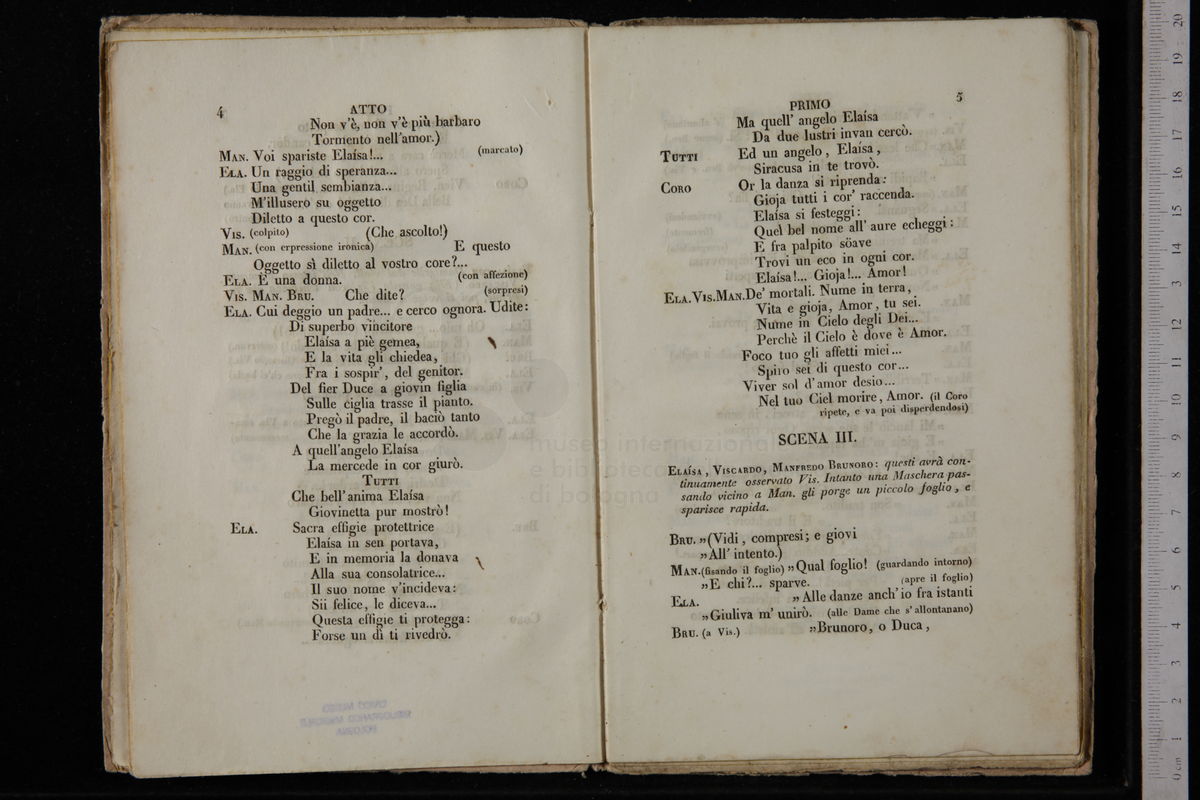 4
ATTO
Non v'è, non v'è più barbaro
Tormento nell'amor.)
MAN. Voi spariste Elaísa!... (marcato)
ELA. Un raggio di speranza...
Una gentil sembianza...
M'illusero su oggetto
Diletto a questo cor.
VIS. (colpito) (Che ascolto!)
MAN. (con erpressione ironica) E questo
Oggetto sì diletto al vostro core?...
ELA. È una donna. (con affezione)
VIS. MAN. BRU. Che dite? (sorpresi)
ELA. Cui deggio un padre... e cerco ognora. Udite:
Di superbo vincitore
Elaísa a piè gemea,
E la vita gli chiedea,
Fra i sospir', del genitor.
Del fier Duce a giovin figlia
Sulle ciglia trasse il pianto.
Pregò il padre, il baciò tanto
Che la grazia le accordò.
A quell'angelo Elaísa
La mercede in cor giurò.
TUTTI
Che bell'anima Elaísa
Giovinetta pur mostrò!
ELA. Sacra effigie protettrice
Elaísa in sen portava,
E in memoria la donava
Alla sua consolatrice...
Il suo nome v'incideva:
Sii felice, le diceva...
Questa effigie ti protegga:
Forse un dì ti rivedrò.
CIVICO MUSEO
BIBLIOGRAFICO MUSICALE
BOLOGNA
PRIMO
5
Ma quell' angelo Elaísa
Da due lustri invan cercò.
TUTTI Ed un angelo, Elaísa,
Siracusa in te trovò.
CORO Or la danza si riprenda:
Gioja tutti i cor' raccenda.
Elaísa si festeggi:
Quel bel nome all' aure echeggi:
E fra palpito söave
Trovi un eco in ogni cor.
Elaísa!... Gioja!... Amor!
ELA.VIS.MAN.De' mortali. Nume in terra,
Vita e gioja, Amor, tu sei.
Nume in Cielo degli Dei...
Perchè il Cielo è dove è Amor.
Foco tuo gli affetti miei...
Spiro sei di questo cor...
Viver sol d'amor desio...
Nel tuo Ciel morire, Amor. (il Coro
ripete, e va poi disperdendosi)
SCENA III.
ELAÍSA, VISCARDO, MANFREDO BRUNORO: questi avrà con-
tinuamente osservato Vis. Intanto una Maschera pas-
sando vicino a Man. gli porge un piccolo foglio, e
sparisce rapida.
BRU. „(Vidi, compresi; e giovi
„All' intento.)
MAN.(fisando il foglio) „Qual foglio! (guardando intorno)
„E chi?... sparve. (apre il foglio)
ELA. „Alle danze anch'io fra istanti
„Giuliva m' unirò. (alle Dame che s'allontanano)
BRU. (a Vis.) „Brunoro, o Duca,
museo internazionale
e biblioteca
di bologna